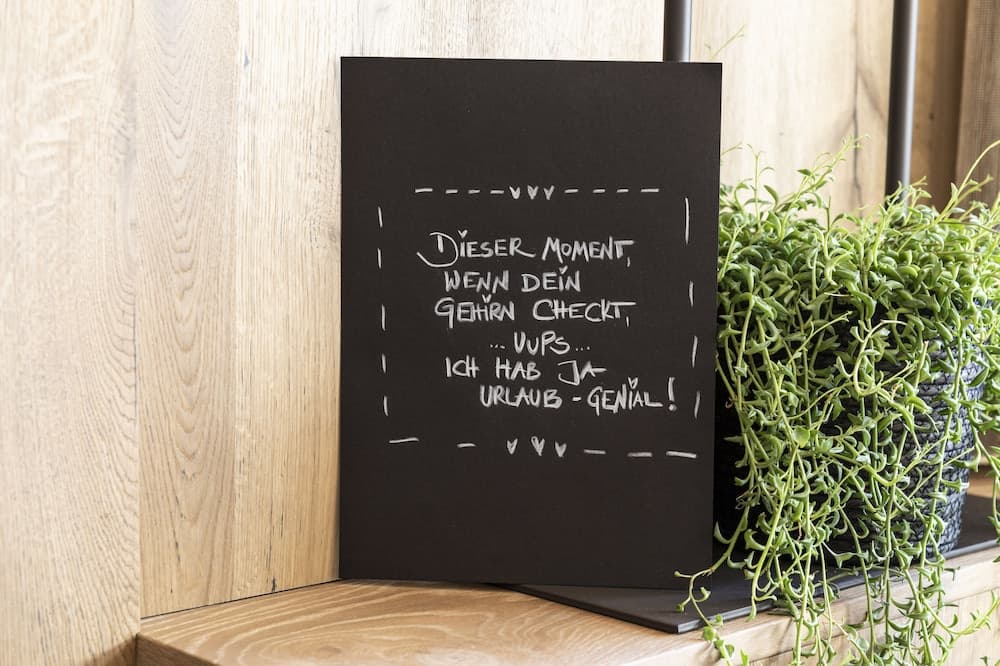 DIESER MOMENT,
WENN DEIN
GEHIRN CHECKT,
... UUPS ...
ICH HAB JA
URLAUB - GENIAL!